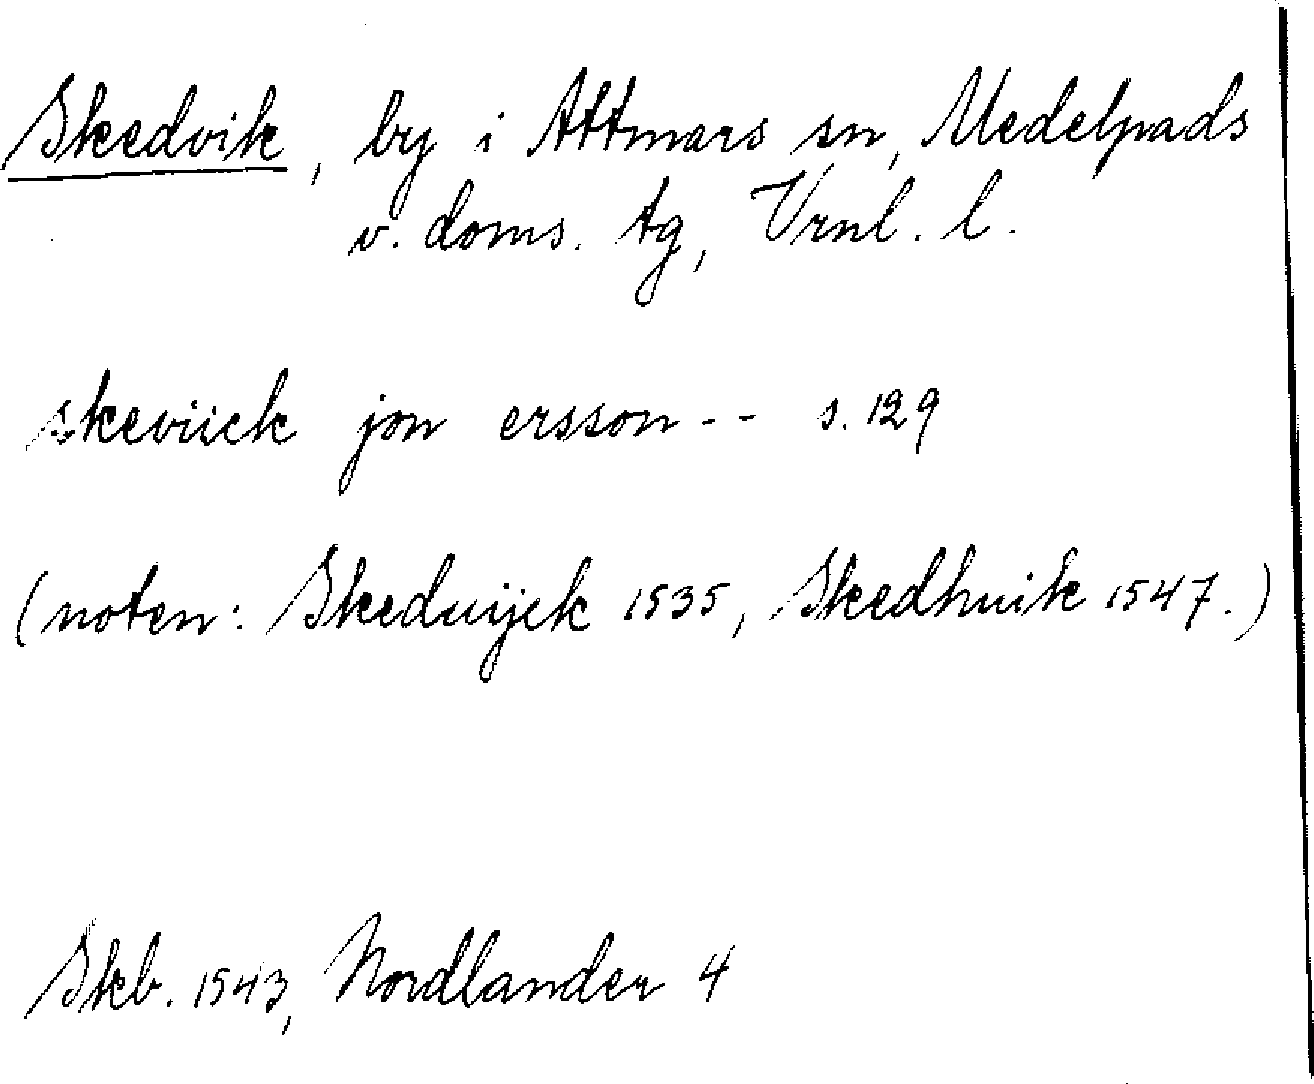 Skedvik, by i Attmars sn, Medelpads
v. doms. tg, Vrnl. l.
skeviick jon ersson - - s. 129
(noten: Skeduijck 1535, Skedhuik 1547.)
Skb. 1543, Nordlander 4